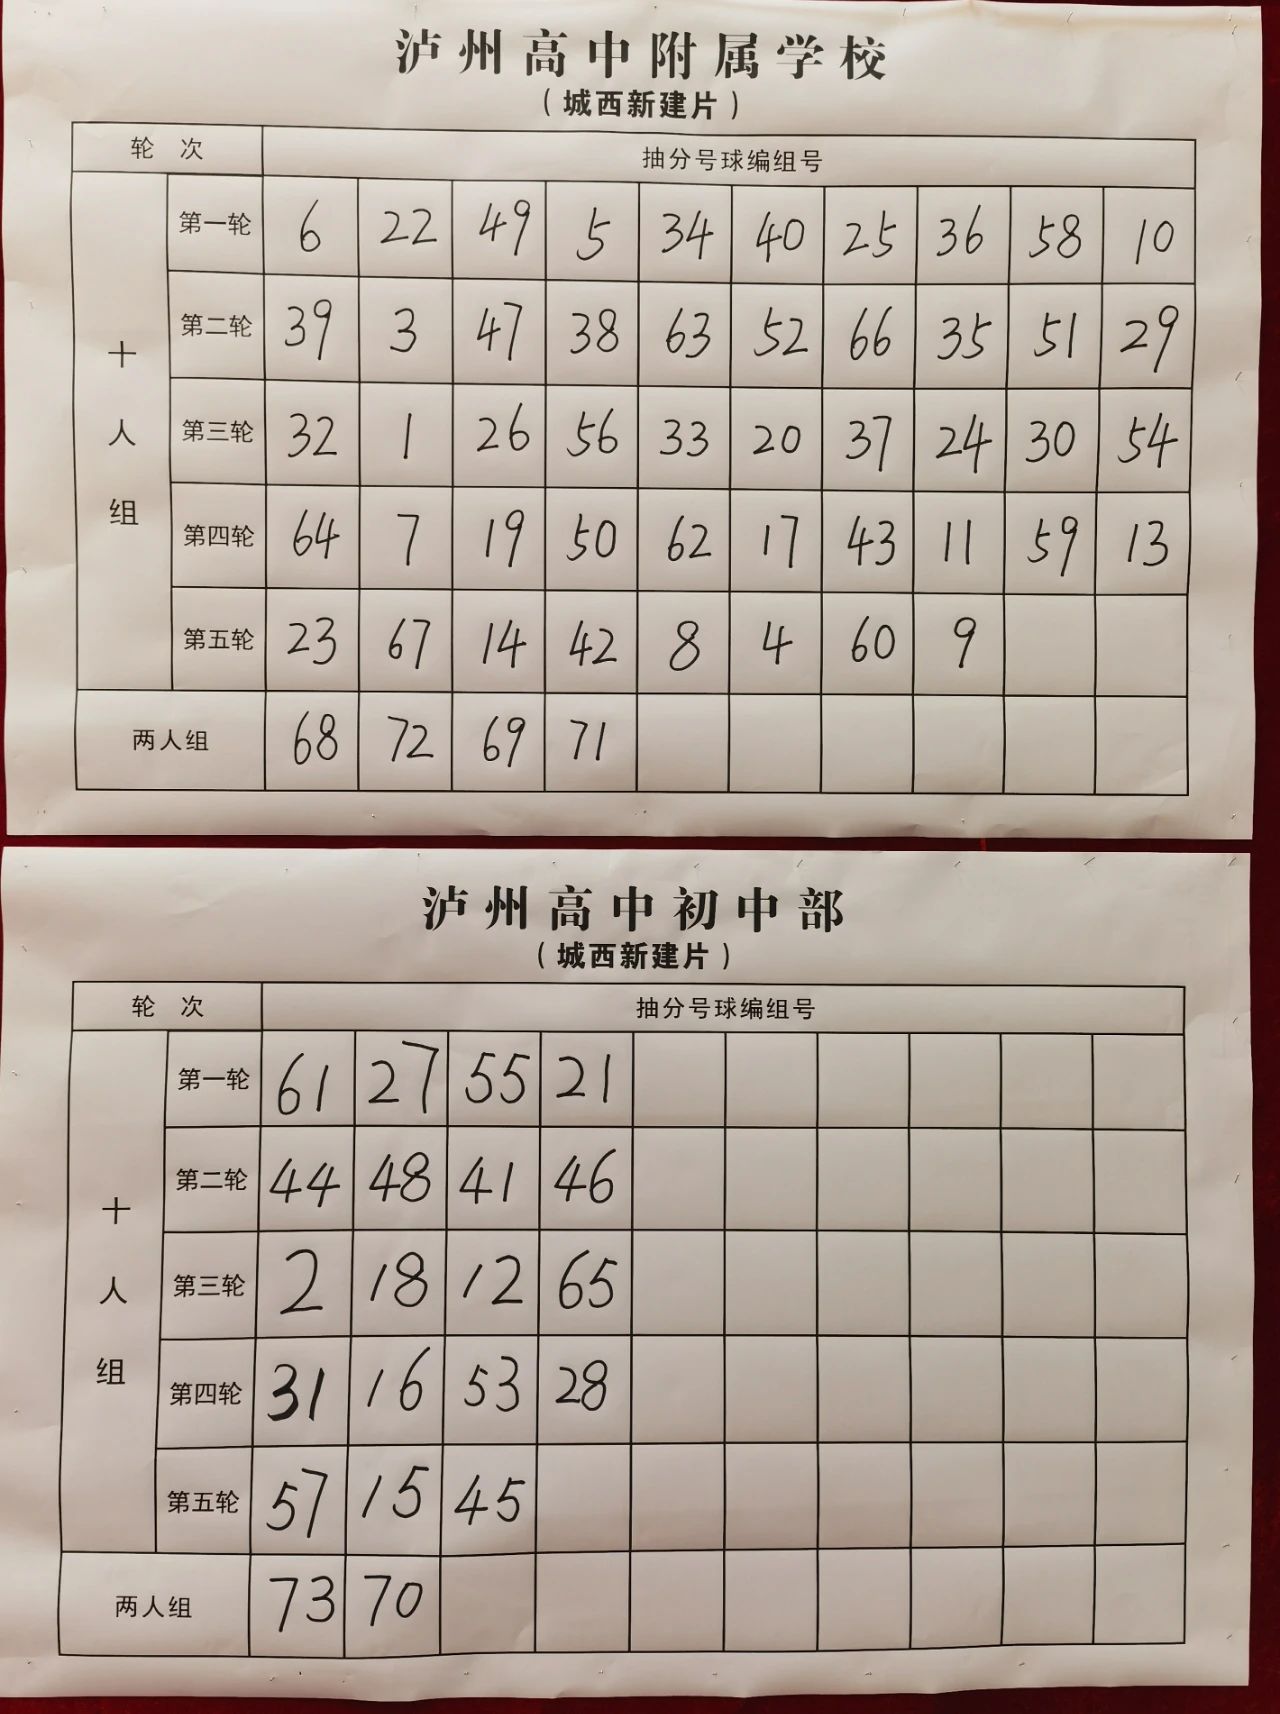 泸州高中附属学校
（城西新建片）
轮次 抽分号球编组号
十人组
第一轮 6 22 49 5 34 40 25 36 58 10
第二轮 39 3 47 38 63 52 66 35 51 29
第三轮 32 1 26 56 33 20 37 24 30 54
第四轮 64 7 19 50 62 17 43 11 59 13
第五轮 23 67 14 42 8 4 60 9
两人组 68 72 69 71
泸州高中初中部
（城西新建片）
轮次 抽分号球编组号
十人组
第一轮 61 27 55 21
第二轮 44 48 41 46
第三轮 2 18 12 65
第四轮 31 16 53 28
第五轮 57 15 45
两人组 73 70